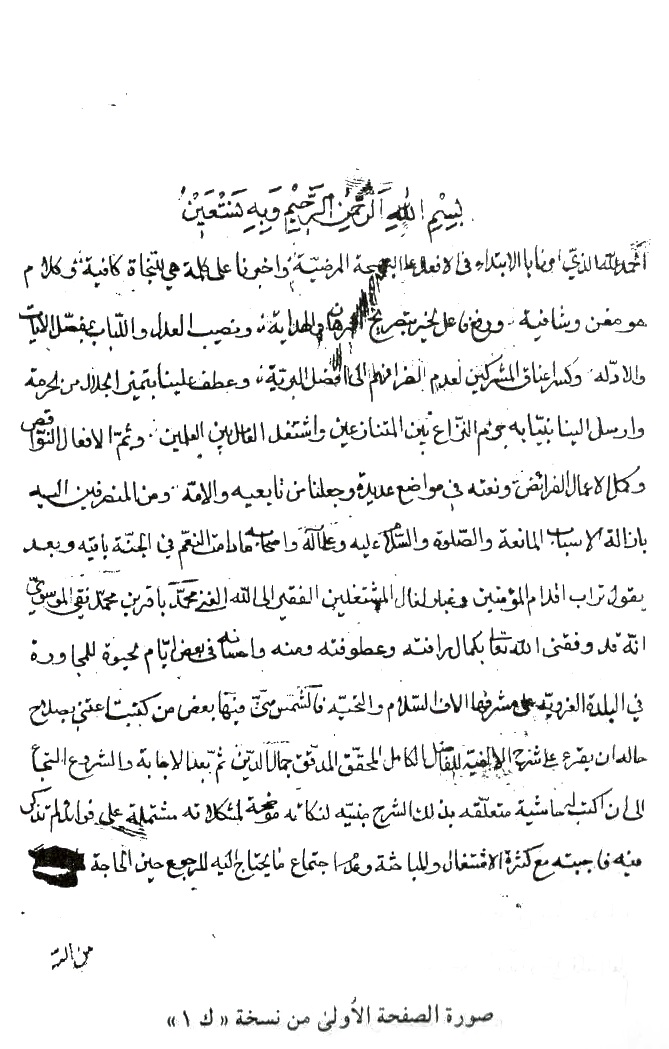 بِسْمِ اللهِ الرَّحْمٰنِ الرَّحِيْمِ وَبِهِ نَسْتَعِيْنُ
الحمد لله الذي بالابتداء في الافعال المرضيّة واخبرنا على كلمة هي للنجاة كافية وكلام
هو مغن وشافية ورفع الخبر بتصريح البرهان في الهداية ونصب العدل واللّباب بمفصّل الآيات
والادلّه وكسر اعناق المشركين لعدم انصرافهم الى افضل البريّة وعطف علينا بتميز الحلال من الحرمة
وارسل الينا نبيّا به جزم النزاع بين المتنازعين واشتغل العالمين العلمين وتمّ الافعال النّواقص
وكمل الاعمال الفرائض ونعته في مواضع عديدة وجعلنا من تابعيه والامّة ومن المنصرفين اليه
بازالة الاسباب المانعة والصّلوة والسّلام عليه وعلى آله واصحابه مادامت النعم في الجنّة باقيه وبعد
يقول تراب اقدام المؤمنين وغبار نعال المشتغلين الفقير الى الله الغني محمّد باقر بن محمّد نقي الموسويّ
انّه قد وفقنى الله تعا بكمال رافته وعطوفته ومنه واحسانه فى بعض ايّام محبوة للمجاورة
في البلدة الغرويّه على مشرفها الاف السّلام والتحيّه فالتمس منّي فيها بعض من كنت اعتني بصلاح
حاله ان يقرء على شرح الالفيّه للفاضل الكامل المحقّق المدقّق جمال الدّين ثمّ بعد الاجابة والشروع التجأ
الى ان اكتب له حاشية متعلّقه بذلك الشرح مبنيه لنكاته موضحة لمشكلاته مشتملة على فوائد لم تذكر
فيه فاجبته مع كثرة الاشتغال والمباحثة وعدم اجتماع ما يحتاج اليه للمرجوع حين الحاجة
من الله
صورة الصفحة الأولىٰ من نسخة «ك ١»